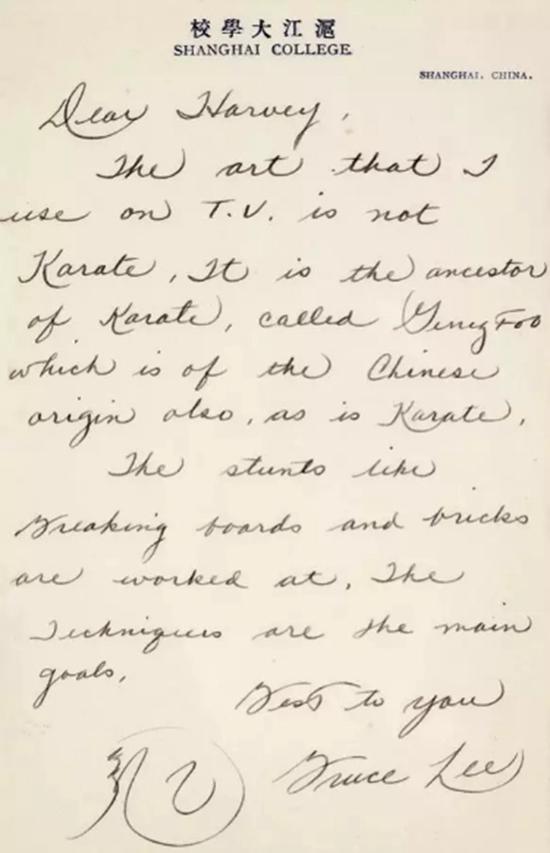 校學大江滬
SHANGHAI COLLEGE
SHANGHAI, CHINA.
Dear Harvey,
The art that I
use on T.V. is not
Karate, It is the ancestor
of Karate, called Gung Foo
which is of the Chinese
origin also, as is Karate,
The stunts like
Breaking boards and bricks
are worked at, The
Techniques are the main
goals,
Best to you
Bruce Lee